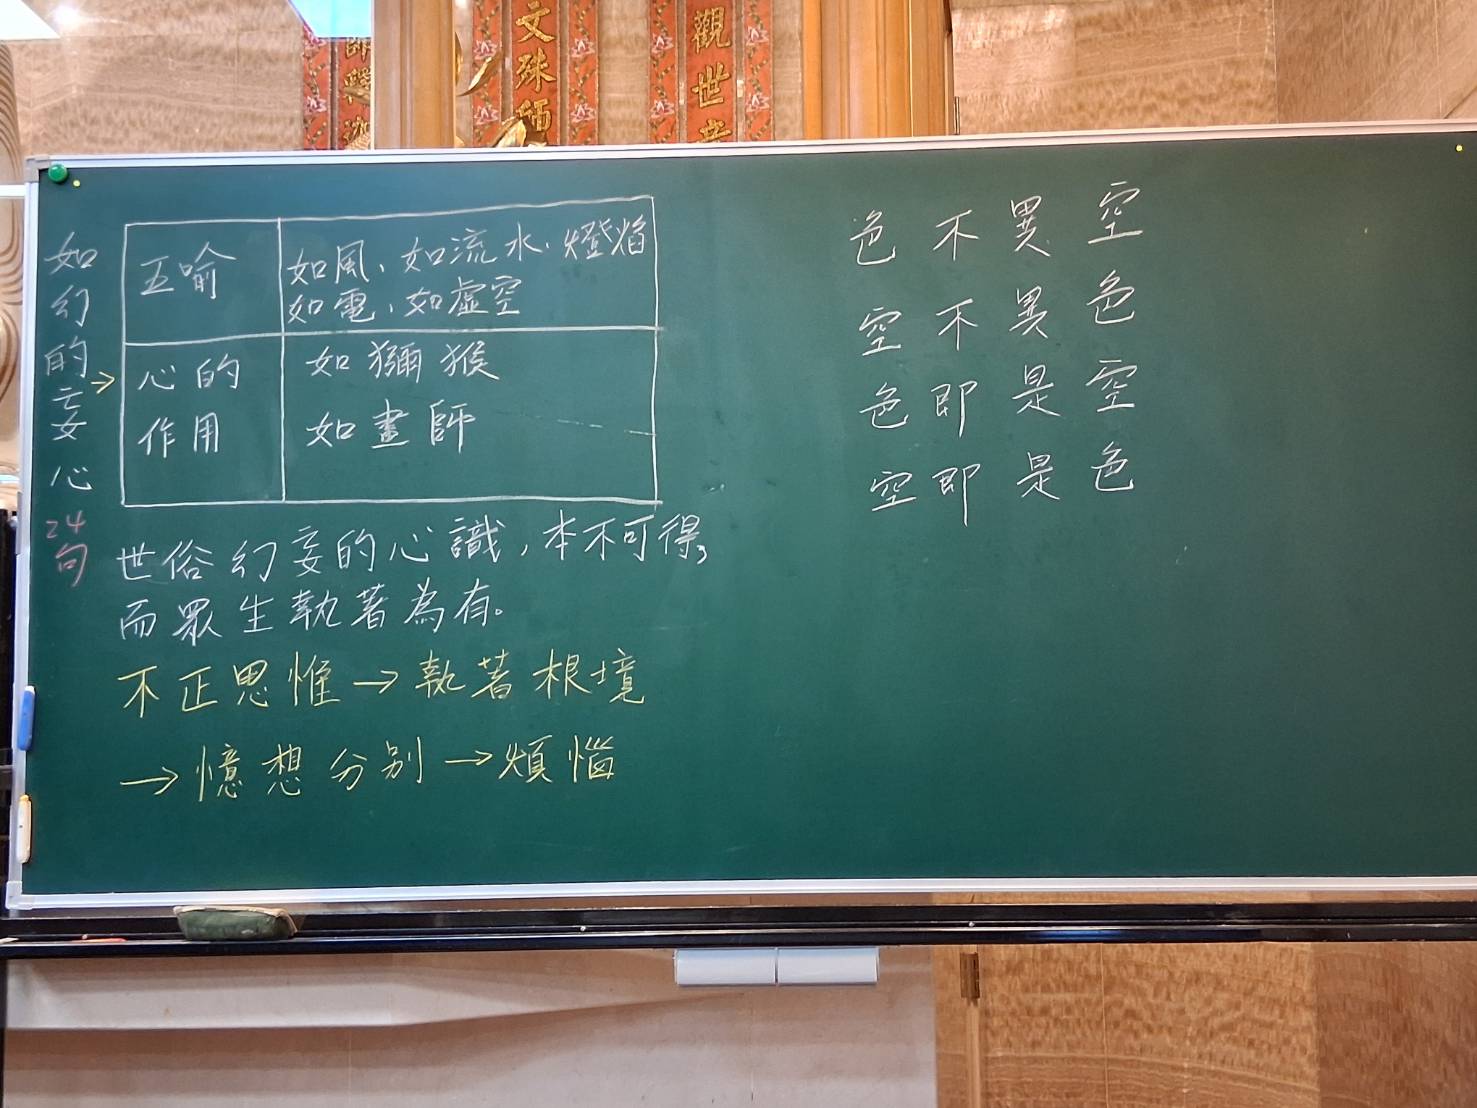 文殊師
觀世音
如幻的妄心
24句
五喻
如風、如流水、燈焰
如電、如虛空
心的
作用
如獼猴
如畫師
世俗幻妄的心識,本不可得,
而眾生執著為有。
不正思惟→執著根境
→憶想分別→煩惱
色不異空
空不異色
色即是空
空即是色